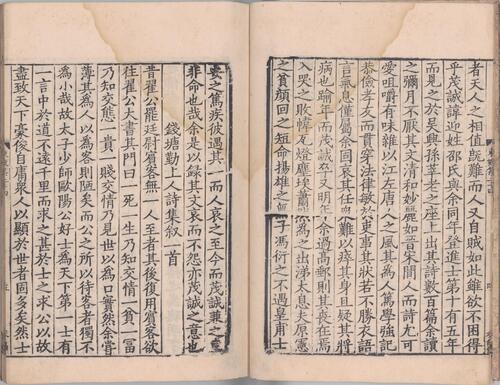 者天人之相值既難而人又自賊如此雖欲不困得
乎茂誠諱迎姓邵氏與余同年登進士第十有五年
而見之於吳興孫莘老之座上出其詩數百篇余讀
之彌月不厭其文清和妙麗如晉宋間人而詩尤可
愛咀嚼有味雜以江左唐人之風其為人篤學強記
恭儉孝友而貫穿法律敏於吏事其狀若不勝衣語
言氣息僅屬余固哀其任眾難以瘁其身且疑其將
病也踰年而茂誠卒又明年余過高郵則其喪在焉
入哭之敗幃瓦燈塵埃蕭然為之出涕太息夫原憲
之貧顏回之短命揚雄之無子馮衍之不遇皇甫士
安之篤疾彼遇其一而人哀之至今而茂誠兼之豈
非命也哉余是以錄其文哀而不怨亦茂誠之意也
錢塘勤上人詩集敘一首
昔翟公罷廷尉賓客無一人至者其後復用賓客欲
往翟公大書其門曰一死一生乃知交情一貧一富
乃知交態一貴一賤交情乃見世以為口實然余嘗
薄其為人以為客則陋矣而公之所以待客者獨不
為小哉故太子少師歐陽公好士為天下第一士有
一言中於道不遠千里而求之甚於士之求公以故
盡致天下豪俊自庸眾人以顯於世者固多矣然士